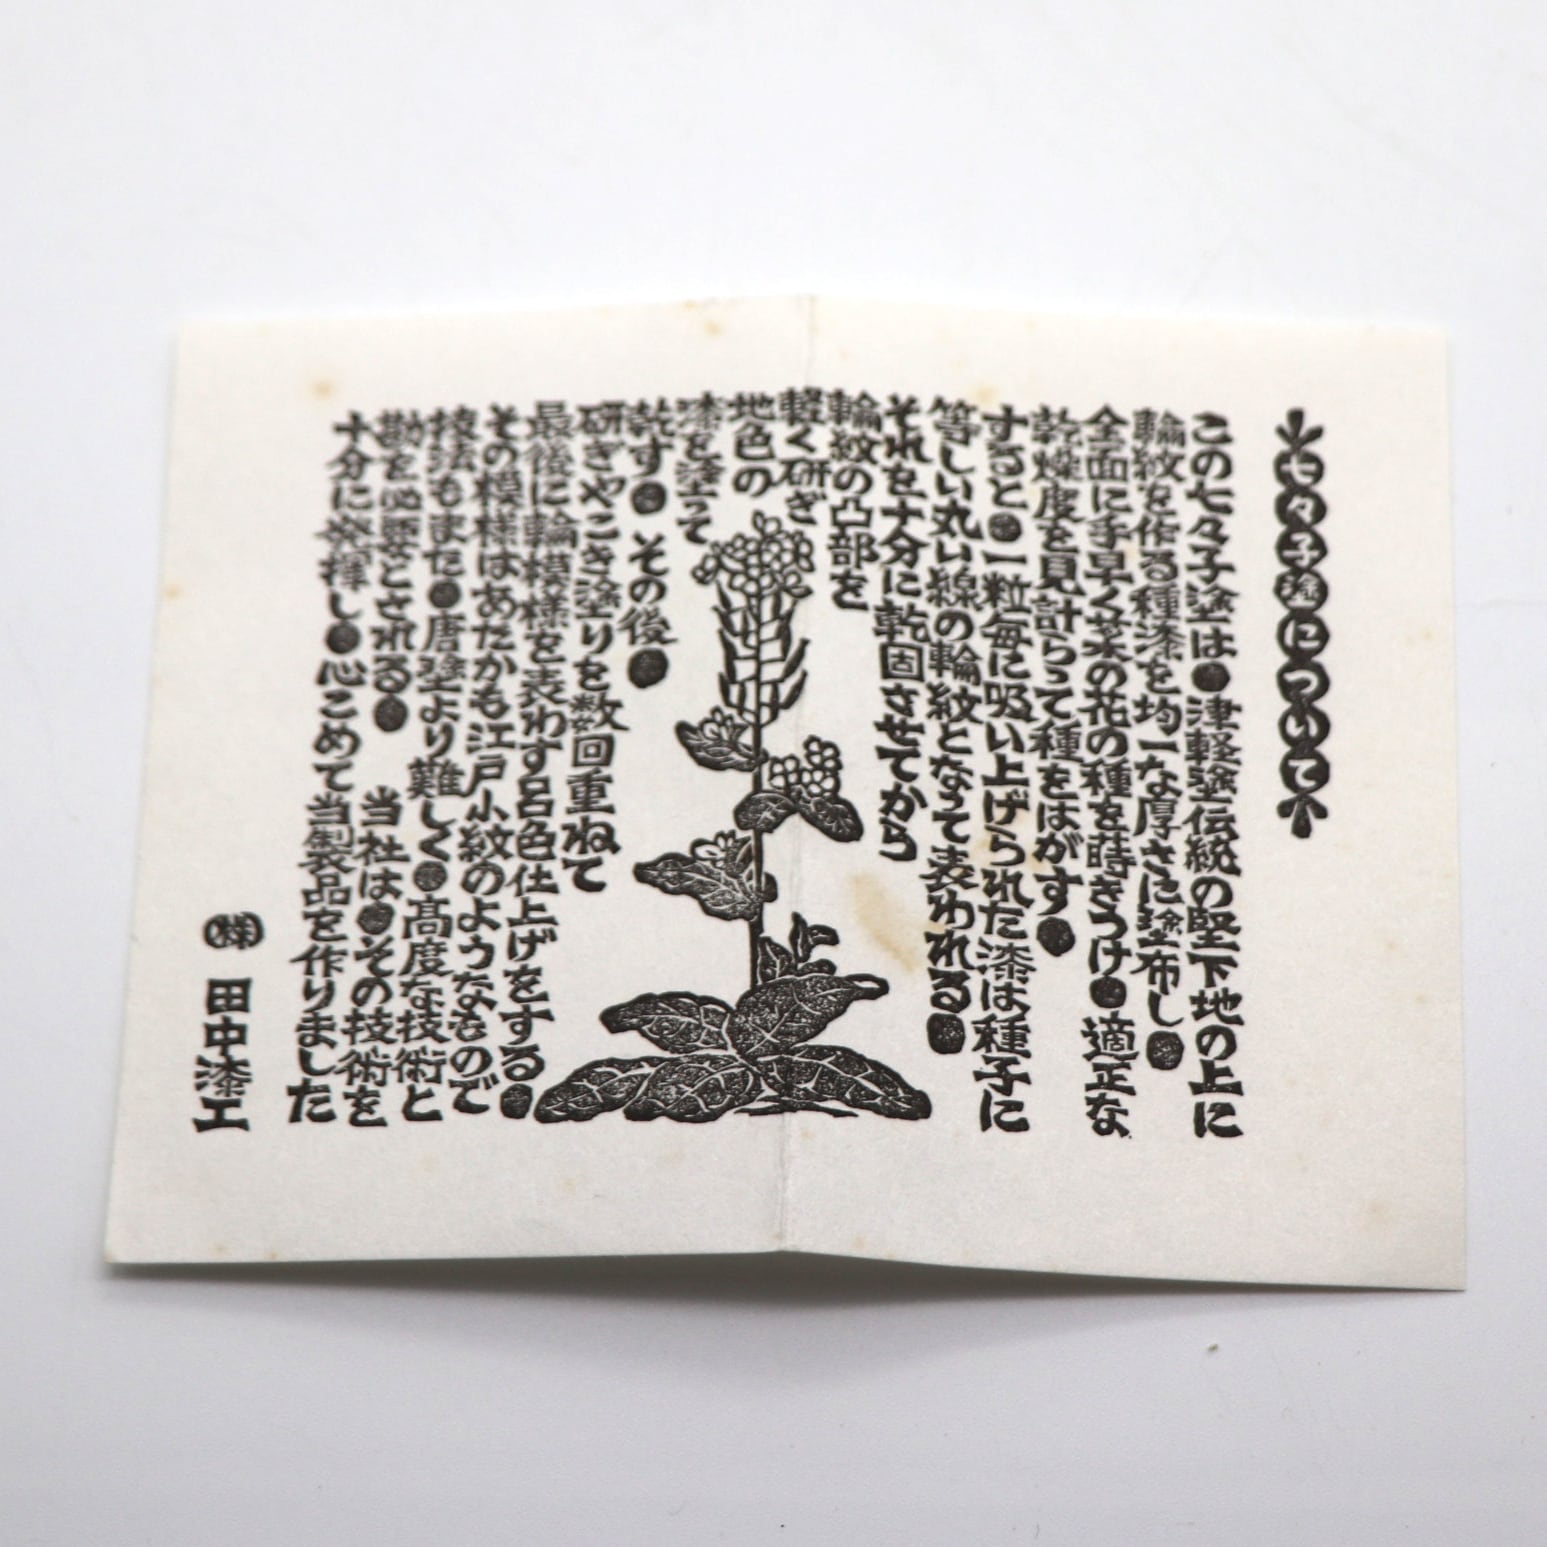 七々子塗について
この七々子塗は●津軽塗伝統の堅下地の上に
輪紋を作る種漆を均一な厚さに塗布し●
全面に手早く菜の花の種を蒔きつけ●適正な
乾燥度を見計らって種をはがす●
すると●一粒毎に吸い上げられた漆は種子に
等しい丸い線の輪紋となって表われる●
それを十分に乾固させてから
輪紋の凸部を
軽く研ぎ
地色の
漆を塗って
乾す●その後●
研ぎやこき塗りを数回重ねて
最後に輪模様を表わす呂色仕上げをする●
その模様はあたかも江戸小紋のようなもので
技法もまた●唐塗より難しく●高度な技術と
勘を必要とされる● 当社は●その技術を
十分に発揮し●心こめて当製品を作りました
㈱ 田中漆工